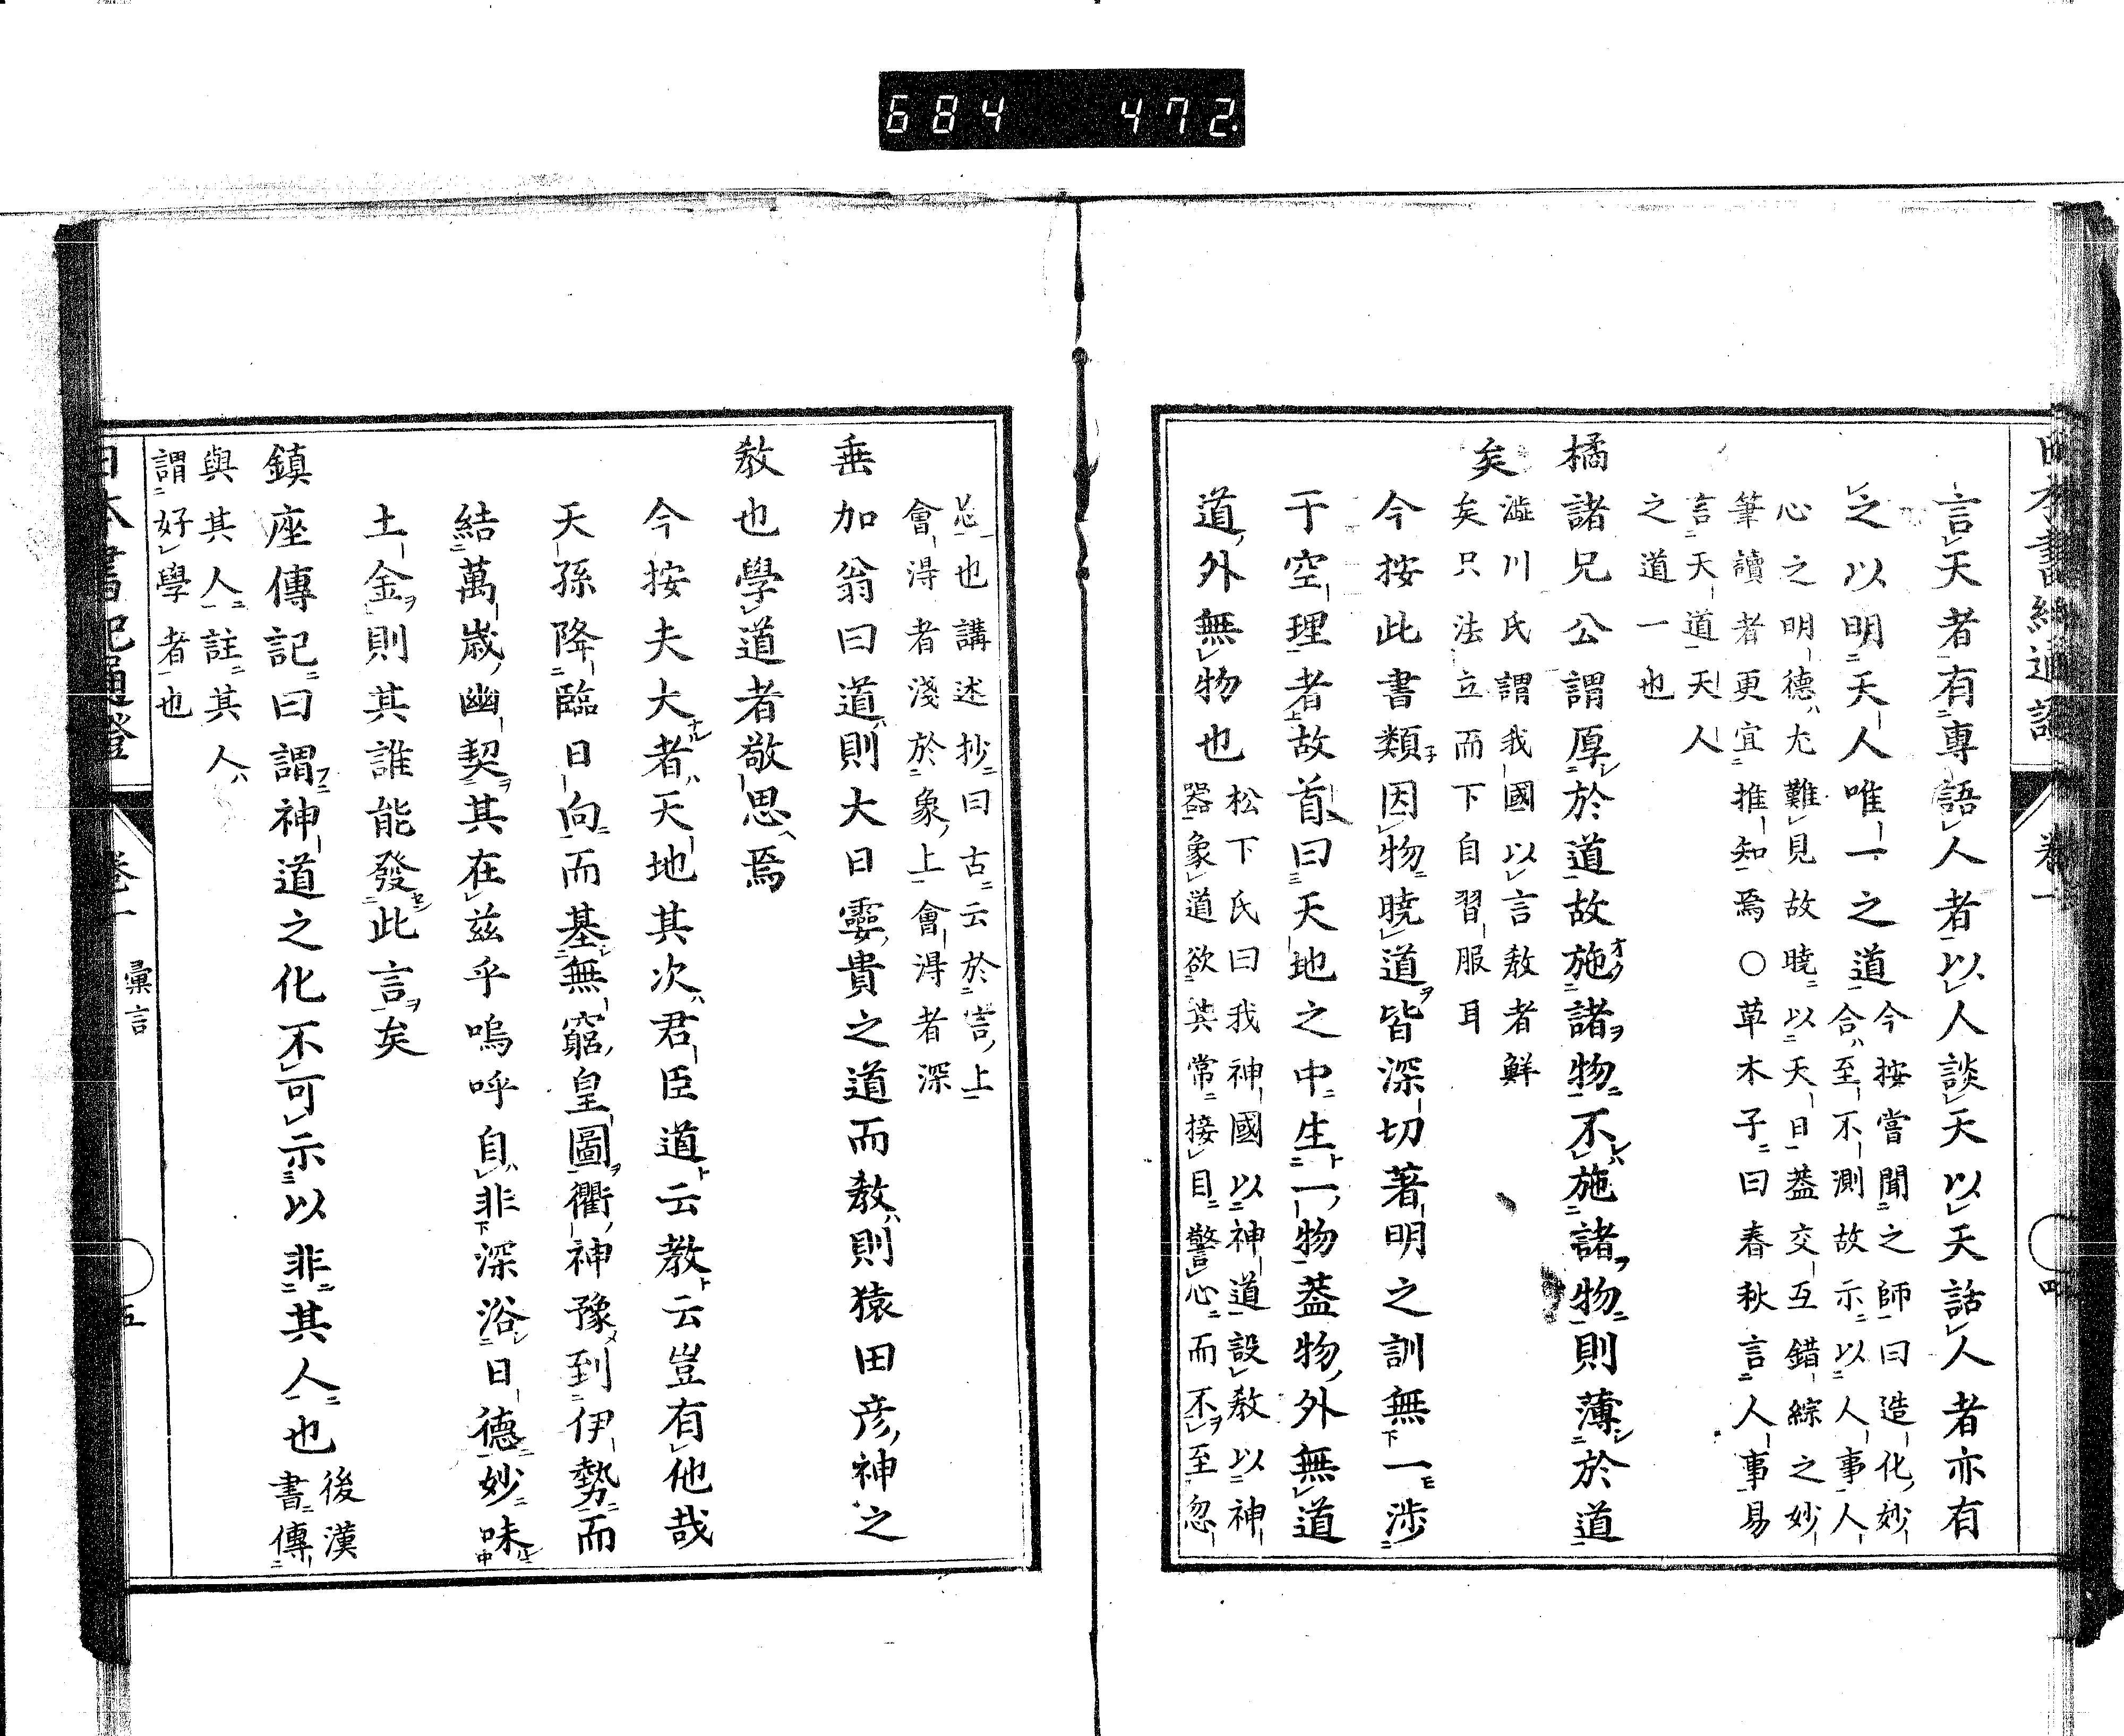 684 472
言天者有專語人者以人談天以天話人者亦有
之以明天人唯一之道
今按嘗聞之師曰造化妙
合至不測故示以人事人
心之明德尤難見故曉以天日蓋交互錯綜之妙
筆讀者更宜推知焉○草木子曰春秋言人事易
言天道天人
之道一也
橘諸兄公謂厚於道故施諸物不施諸物則薄於道
矣
澁川氏謂我國以言敎者鮮
矣只法立而下自習服耳
今按此書類因物曉道皆深切著明之訓無一涉
于空理者故首曰天地之中生一物蓋物外無道
道外無物也
松下氏曰我神國以神道設敎以神
器象道欲其常接目警心而不至忽
忘也講述抄曰古云於言上
會得者淺於象上會得者深
垂加翁曰道則大日孁貴之道而敎則猿田彦神之
敎也學道者敬思焉
今按夫大者天地其次君臣道云教云豈有他哉
天孫降臨日向而基無窮皇圖衢神豫到伊勢而
結萬歲幽契其在兹乎嗚呼自非深浴日德妙味
土金則其誰能發此言矣
鎮座傳記曰謂神道之化不可示以非其人也
後漢
書傳
與其人註其人
謂好學者也
日本書紀通證 卷一 彙言 五